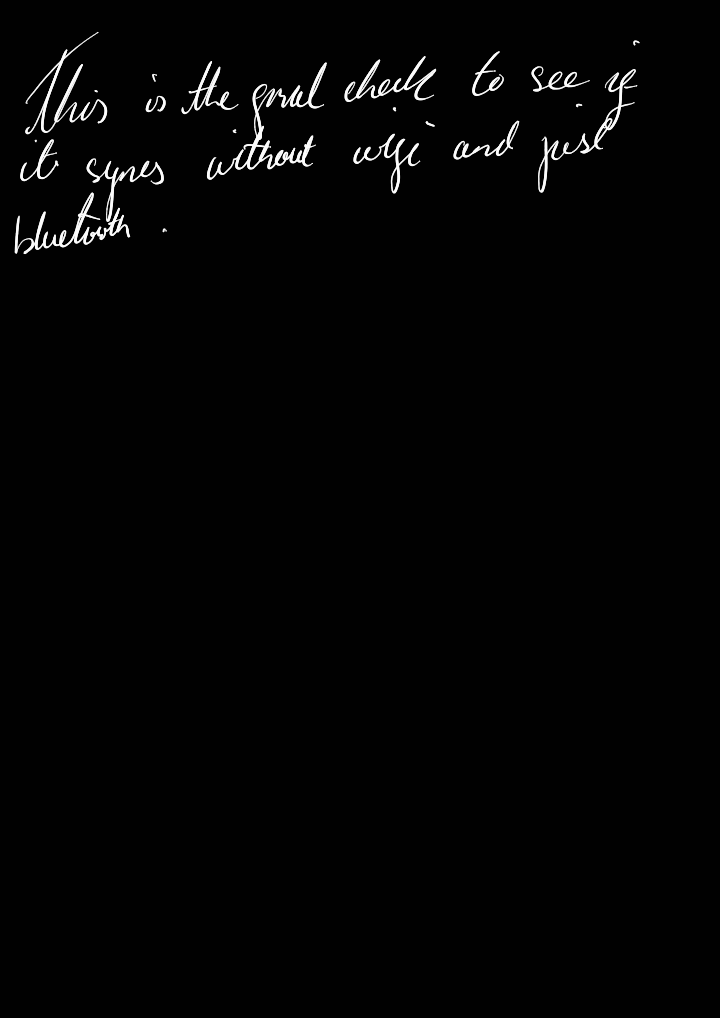 This is the final check to see if
it syncs without wifi and just
bluetooth.